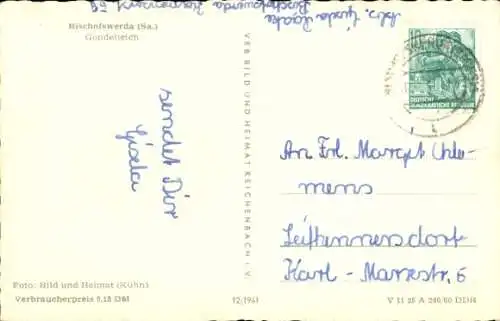 Bischofswerda (Sa.)
Gondelteich
Abs. Gisela
Bischofswerda
sendet Dir
Gisela
VEB BILD UND HEIMAT REICHENBACH I. V.
10
DEUTSCHE
DEMOKRATISCHE REPUBLIK
An Frl. Margit Cle-
mens
Leutersdorf
Karl-Marxstr. 6
Foto: Bild und Heimat (Kühn)
Verbraucherpreis 0,12 DM
12/1941
V 11 28 A 240/60 DDR